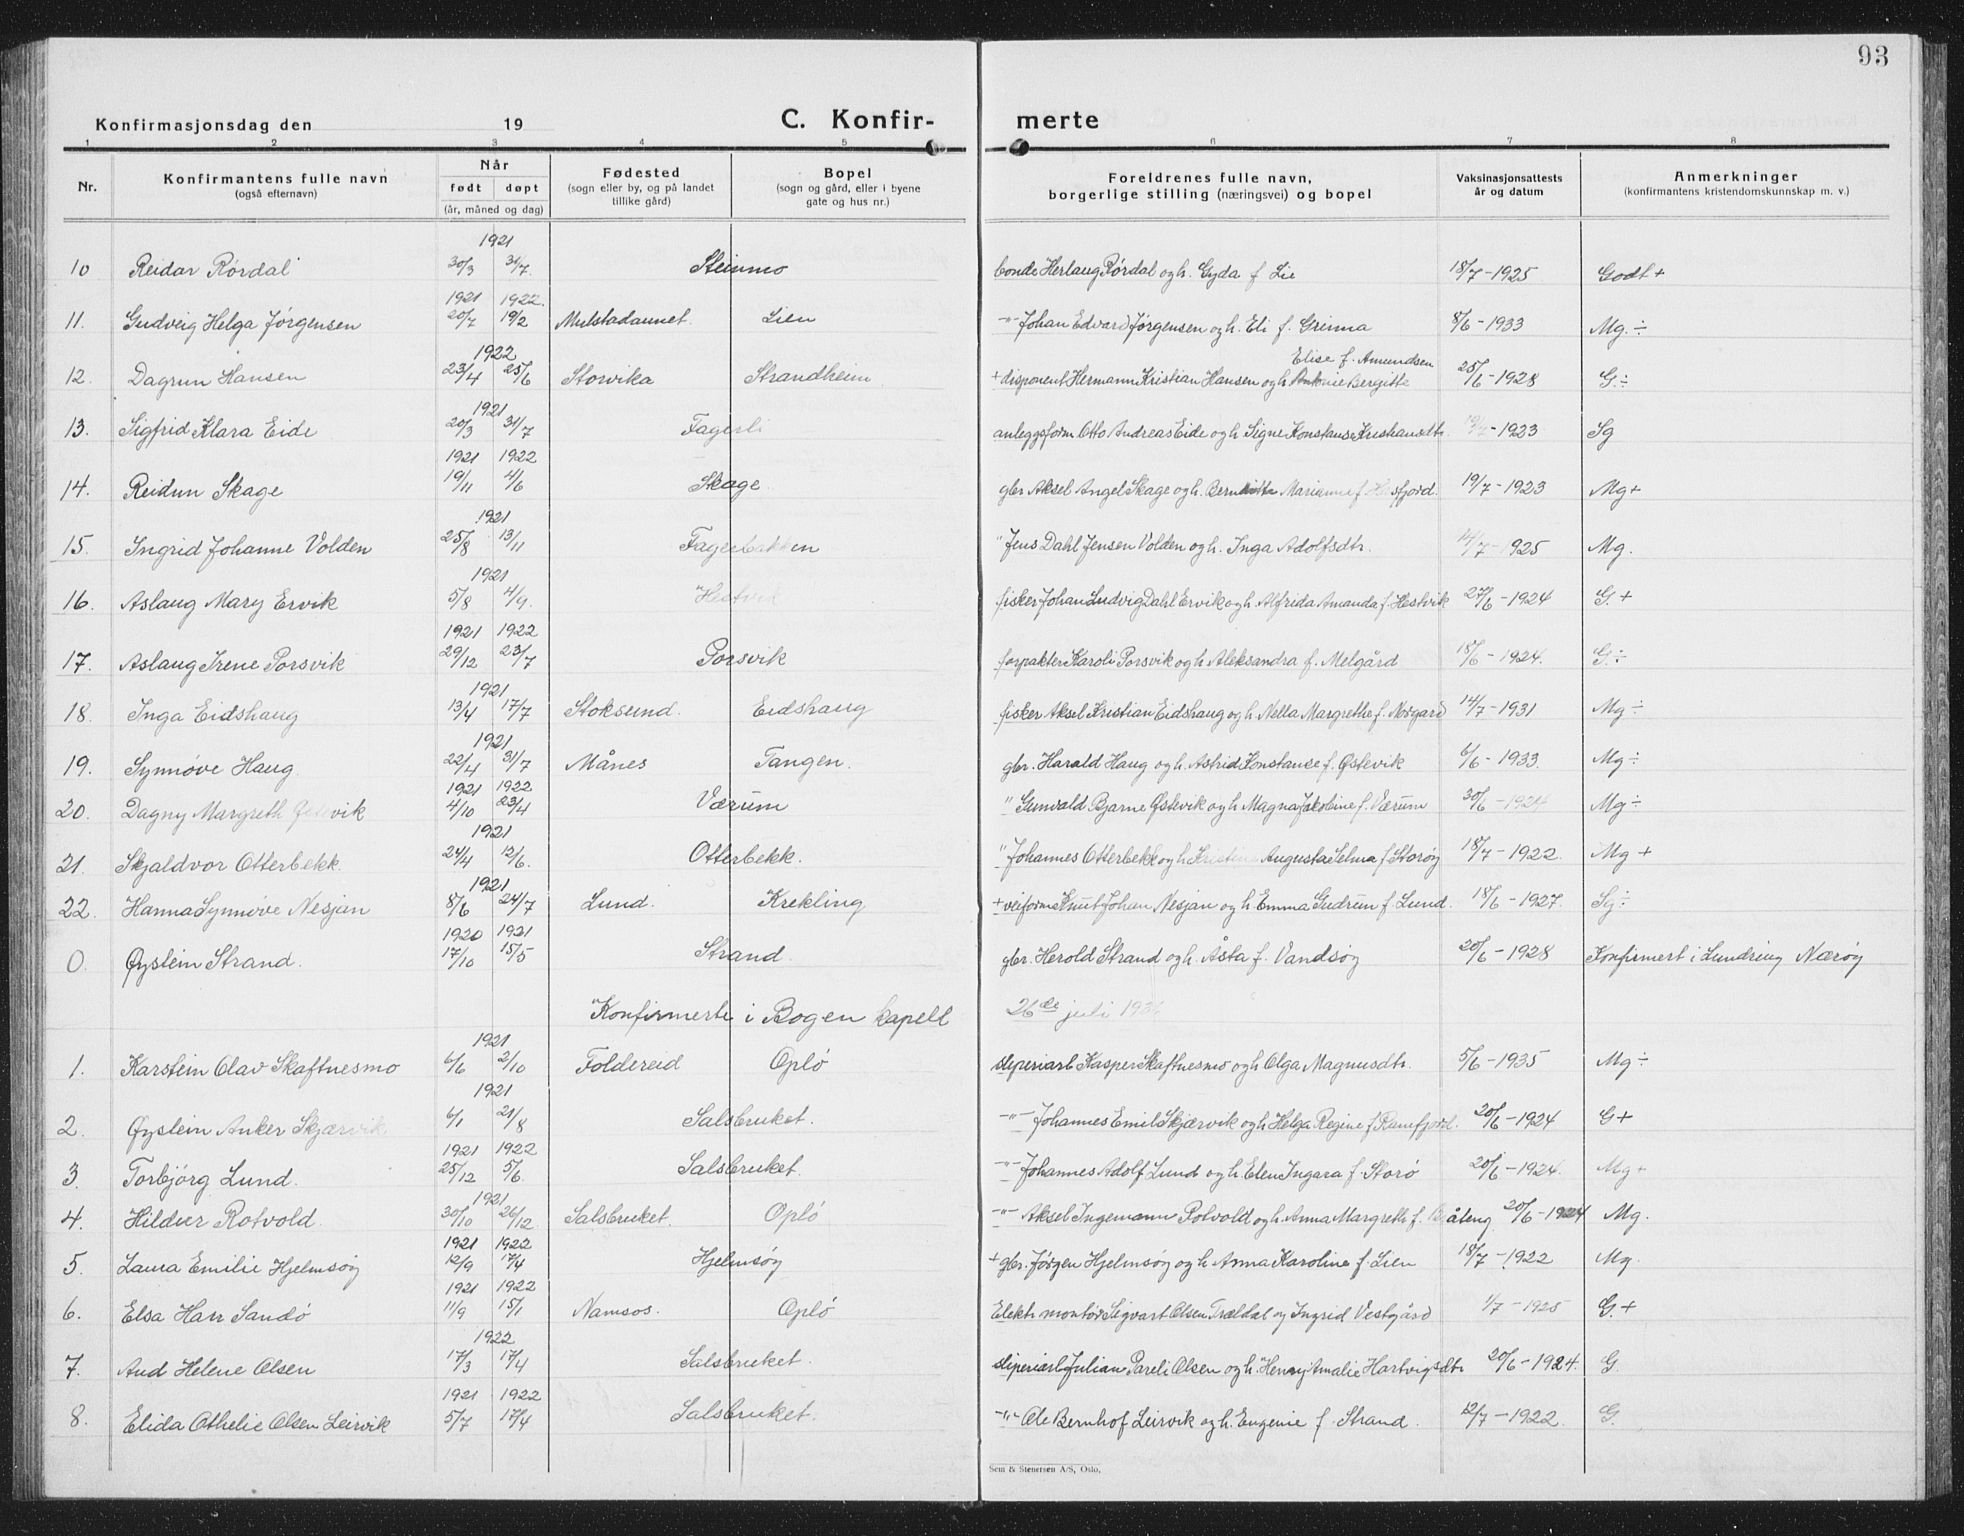 93
Konfirmasjonsdag den 19
C. Konfir- merte
1 2 3 4 5 6 7 8
Nr.
Konfirmantens fulle navn
(også efternavn)
Når
født døpt
(år, måned og dag)
Fødested
(sogn eller by, og på landet
tillike gård)
Bopel
(sogn og gård, eller i byene
gate og hus nr.)
Foreldrenes fulle navn,
borgerlige stilling (næringsvei) og bopel
Vaksinasjonsattests
år og datum
Anmerkninger
(konfirmantens kristendomskunnskap m. v.)
1921
10 Reidar Rørdal 30/3 31/7 Steinmo bonde Herlaug Rørdal og h. Gyda f. Lie 18/7-1925 Godt +
1921 1922.
11. Gudveig Helga Jørgensen 20/7 19/2 Mulstadaunet. Lien -"- Johan Edvard Jørgensen og h. Eli f. Greinma 8/6-1933 Mg. ÷
1922 Elise f. Amundsen
12. Dagrun Hansen 23/4 25/6 Storvika Strandheim + disponent Hermann Kristian Hansen og h. Antonie Bergitte 25/6-1928 G ÷
1921
13. Sigfrid Klara Eide 20/3 31/7 Fagerli anleggsform. Otto Andreas Eide og h. Signe Konstanse Kristiansdtr. -1923 Sg
1921 1922
14. Reidun Skage 19/11 4/6 Skage. gbr Aksel Angel Skage og h. Marianne f. 19/7-1923 Mg +
1921
15. Ingrid Johanne Volden 25/8 13/11 Fagerbakken " Jens Dahl Jensen Volden og h. Inga Adolfsdtr. 14/7-1925 Mg.
1921
16. Aslaug Mary Ervik 5/8 4/9. Hestvik fisker Johan Ludvig Dahl Ervik og h. Alfrida Amanda f. Hestvik 27/6-1924 G. +
1921 1922
17. Aslaug Irene Porsvik 29/12 23/7 Porsvik forpakter Karoli Porsvik og h. Aleksandra f. Melgård 18/6-1924. G. ÷
1921
18. Inga Eidshaug 13/4 17/7 Stoksund. Eidshaug fisker Aksel Kristian Eidshaug og h. Nella Margrethe f. Norgard 14/7-1931 Mg ÷
1921
19. Synnøve Haug. 22/4 31/7 Månes Tangen. gbr. Harald Haug og h. Astrid Konstanse f. Østevik 6/6-1933. Mg ÷
1921 1922
20. Dagny Margreth Østevik 4/10 23/4 Værum " Gunvald Bjarne Østevik og h. Magna Jakobine f. Værum 30/6-1924 Mg ÷
1921
21. Skjaldvor Otterbekk. 24/4 12/6. Otterbekk. " Johannes Otterbekk og h. Kristine Augusta Selma f. Storøy 18/7-1922. Mg +
1921
22. Hanna Synnøve Nesjan 8/6 24/7 Lund. Krekling + veiform. Knut Johan Nesjan og h. Emma Gudrun f. Lund. 18/6-1927. Sg ÷
1920 1921
0. Øystein Strand. 17/10 15/5 Strand. gbr. Herold Strand og h. Åsta f. Vandsøy 20/6-1928 Konfirmert i Lundring Nærøy
Konfirmerte i Bogen kapell 26de juli 193
1921
1. Karstein Olav Skaftnesmo 6/6 2/10 Foldereid Oplø sliperiarb Kasper Skaftnesmo og h Olga Magnusdtr. 5/6-1935 Mg ÷
1921
2. Øystein Anker Skjærvik 6/1 21/8 Salsbruket. -"- Johannes Emil Skjærvik og h Helga Regine f Ramfjord. 20/6-1924 G +
1921 1922
3. Torbjørg Lund. 25/12 5/6 Salsbruket. -"- Johannes Adolf Lund og h. Elen Ingara f. Storø 20/6-1924. Mg +
1921
4. Hildur Rotvold. 30/10 26/12. Salsbruket. Oplø -"- Aksel Ingemann Rotvold og h. Anna Margreth f. Båteng 20/6-1924 Mg.
1921 1922
5. Laura Emilie Hjelmsøy 12/9 17/4 Hjelmsøy + gbr. Jørgen Hjelmsøy og h Anna Karoline f. Lien 18/7-1922 Mg.
1921 1922
6. Elsa Harr Sandø 11/9 15/1 Namsos. Oplø Elektr. montør Sigvart Olsen Trældal og Ingrid Vestgård 1/7-1925 G +
1922
7. Aud Helene Olsen 17/3 17/4 Salsbruket. sliperiarb Julian Pareli Olsen og h. Henny Amalie Hartvigsdtr 20/6-1924. G.
1921 1922
8. Elida Othelie Olsen Leirvik 5/7 17/4 Salsbruket. -"- Ole Bernhof Leirvik og h. Eugenie f. Strand. 12/7-1922. G.
Sem & Stenersen A/S, Oslo.